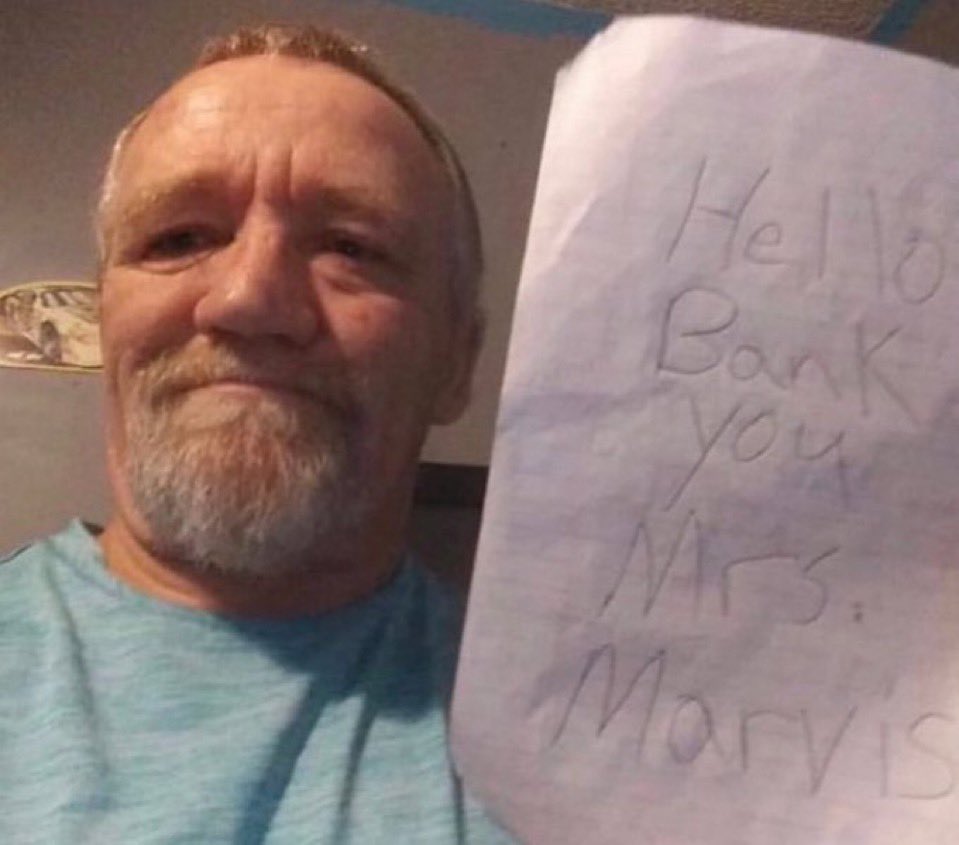 Hello
Bank
you
Mrs.
Marvis